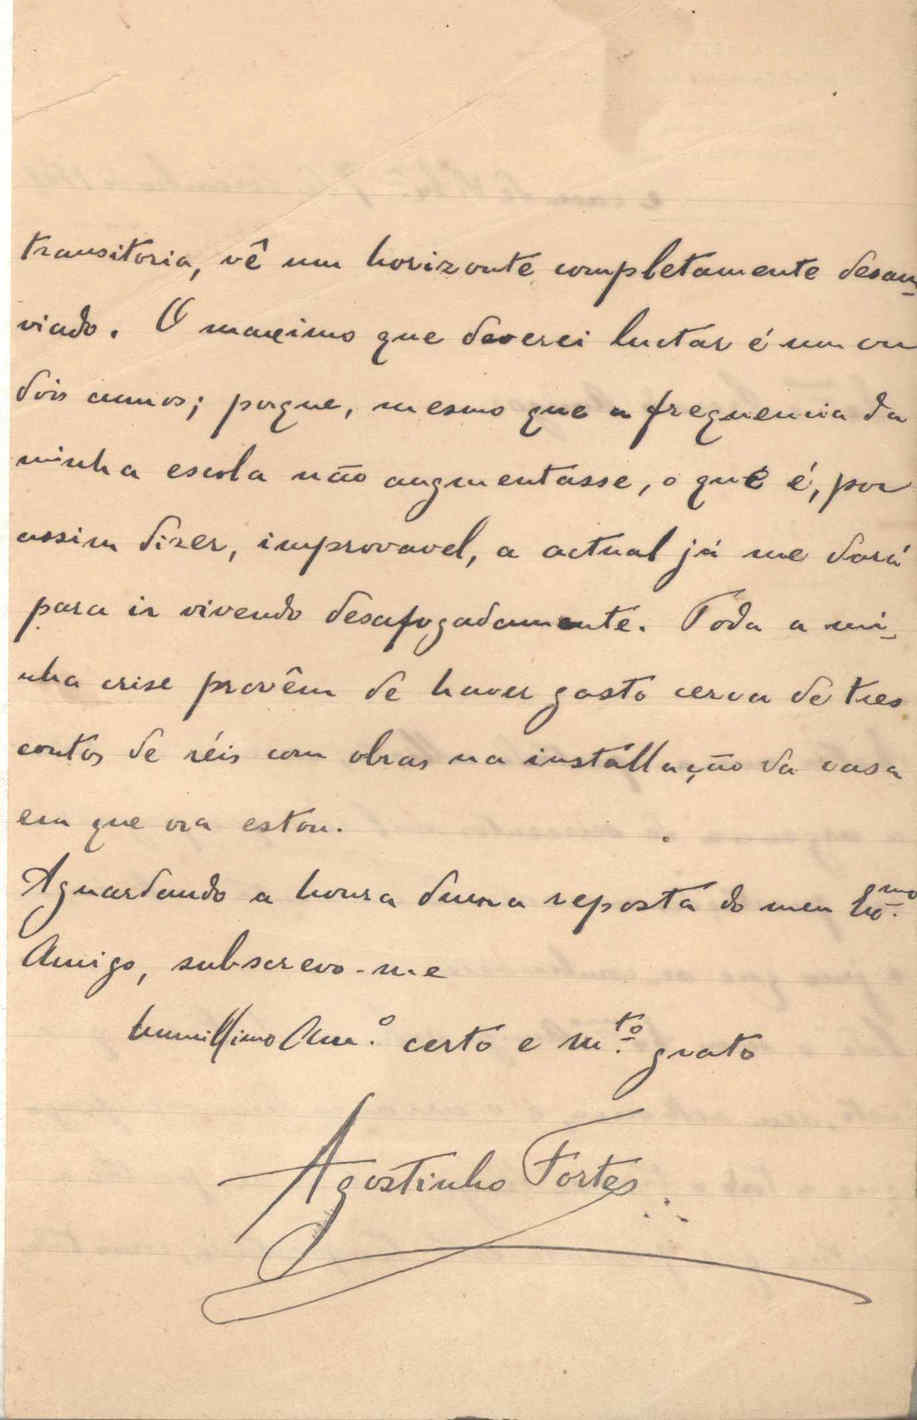 transitoria, vê um horizonte completamente desan-
viado. O maximo que deverei luctar é um ou
dois annos; porque, mesmo que a frequencia da
minha escola não augmentasse, o que é, por
assim dizer, improvavel, a actual já me dará
para ir vivendo desafogadamente. Toda a mi-
nha crise provêm de haver gasto cerca de tres
contos de réis com obras na installação da casa
em que ora estou.
Aguardando a honra duma reposta do meu
Amigo, subscrevo-me
humillimo Am.º certo e m.to grato
Agostinho Fortes